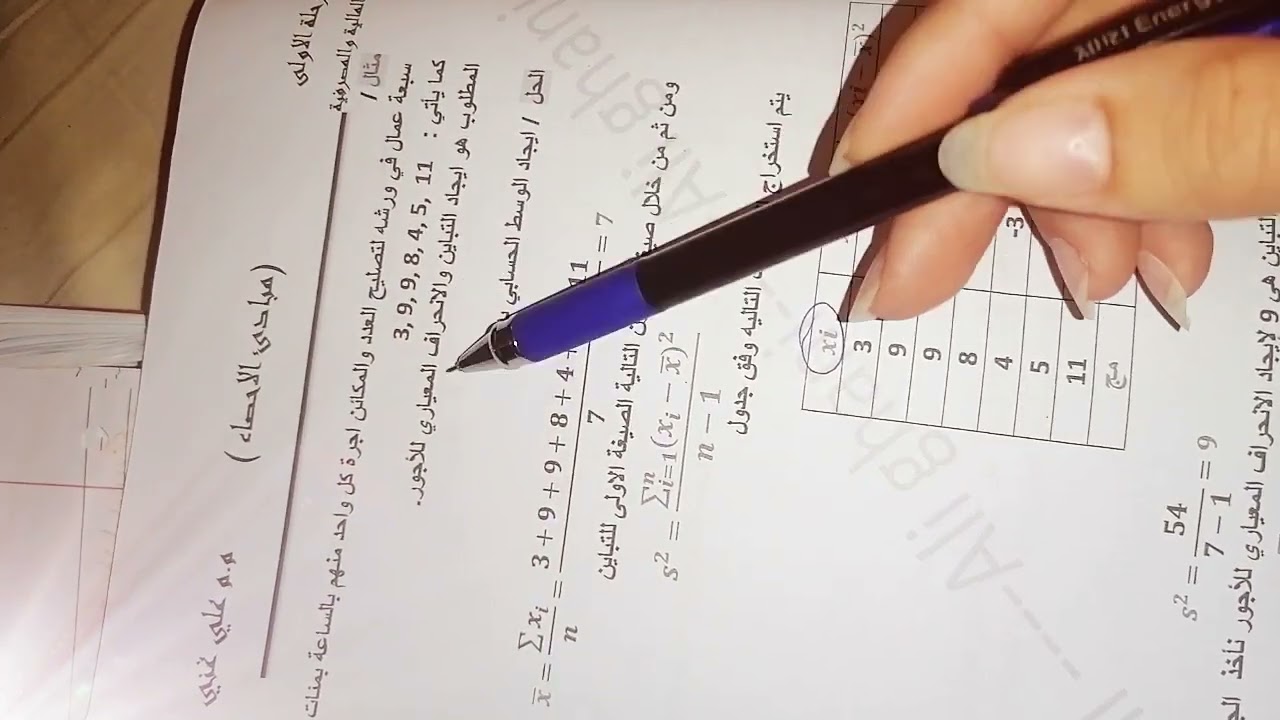 م.م علي غني
( مبادئ الاحصاء )
المالية والمصرفية
رحلة الاولى
مثال /
سبعة عمال في ورشه لتصليح العدد والمكائن اجرة كل واحد منهم بالساعة بمئات
كما يأتي : 3, 9, 9, 8, 4, 5, 11
المطلوب هو ايجاد التباين والانحراف المعياري للأجور.
الحل / ايجاد الوسط الحسابي
x̅ = ∑ xi / n = 3 + 9 + 9 + 8 + 4 + 11 / 7 = 7
ومن ثم من خلال التالية الصيغة الاولى للتباين
s² = ∑ⁿᵢ₌₁(xᵢ − x̅)² / n − 1
يتم استخراج التاليه وفق جدول
xi (xi − x̅)²
3
9
9
8
4 -3
5
11
مج
s² = 54 / 7 − 1 = 9
التباين هي 9 لايجاد الانحراف المعياري للأجور نأخذ
Ali ghani
Ali ghani ---- Ali